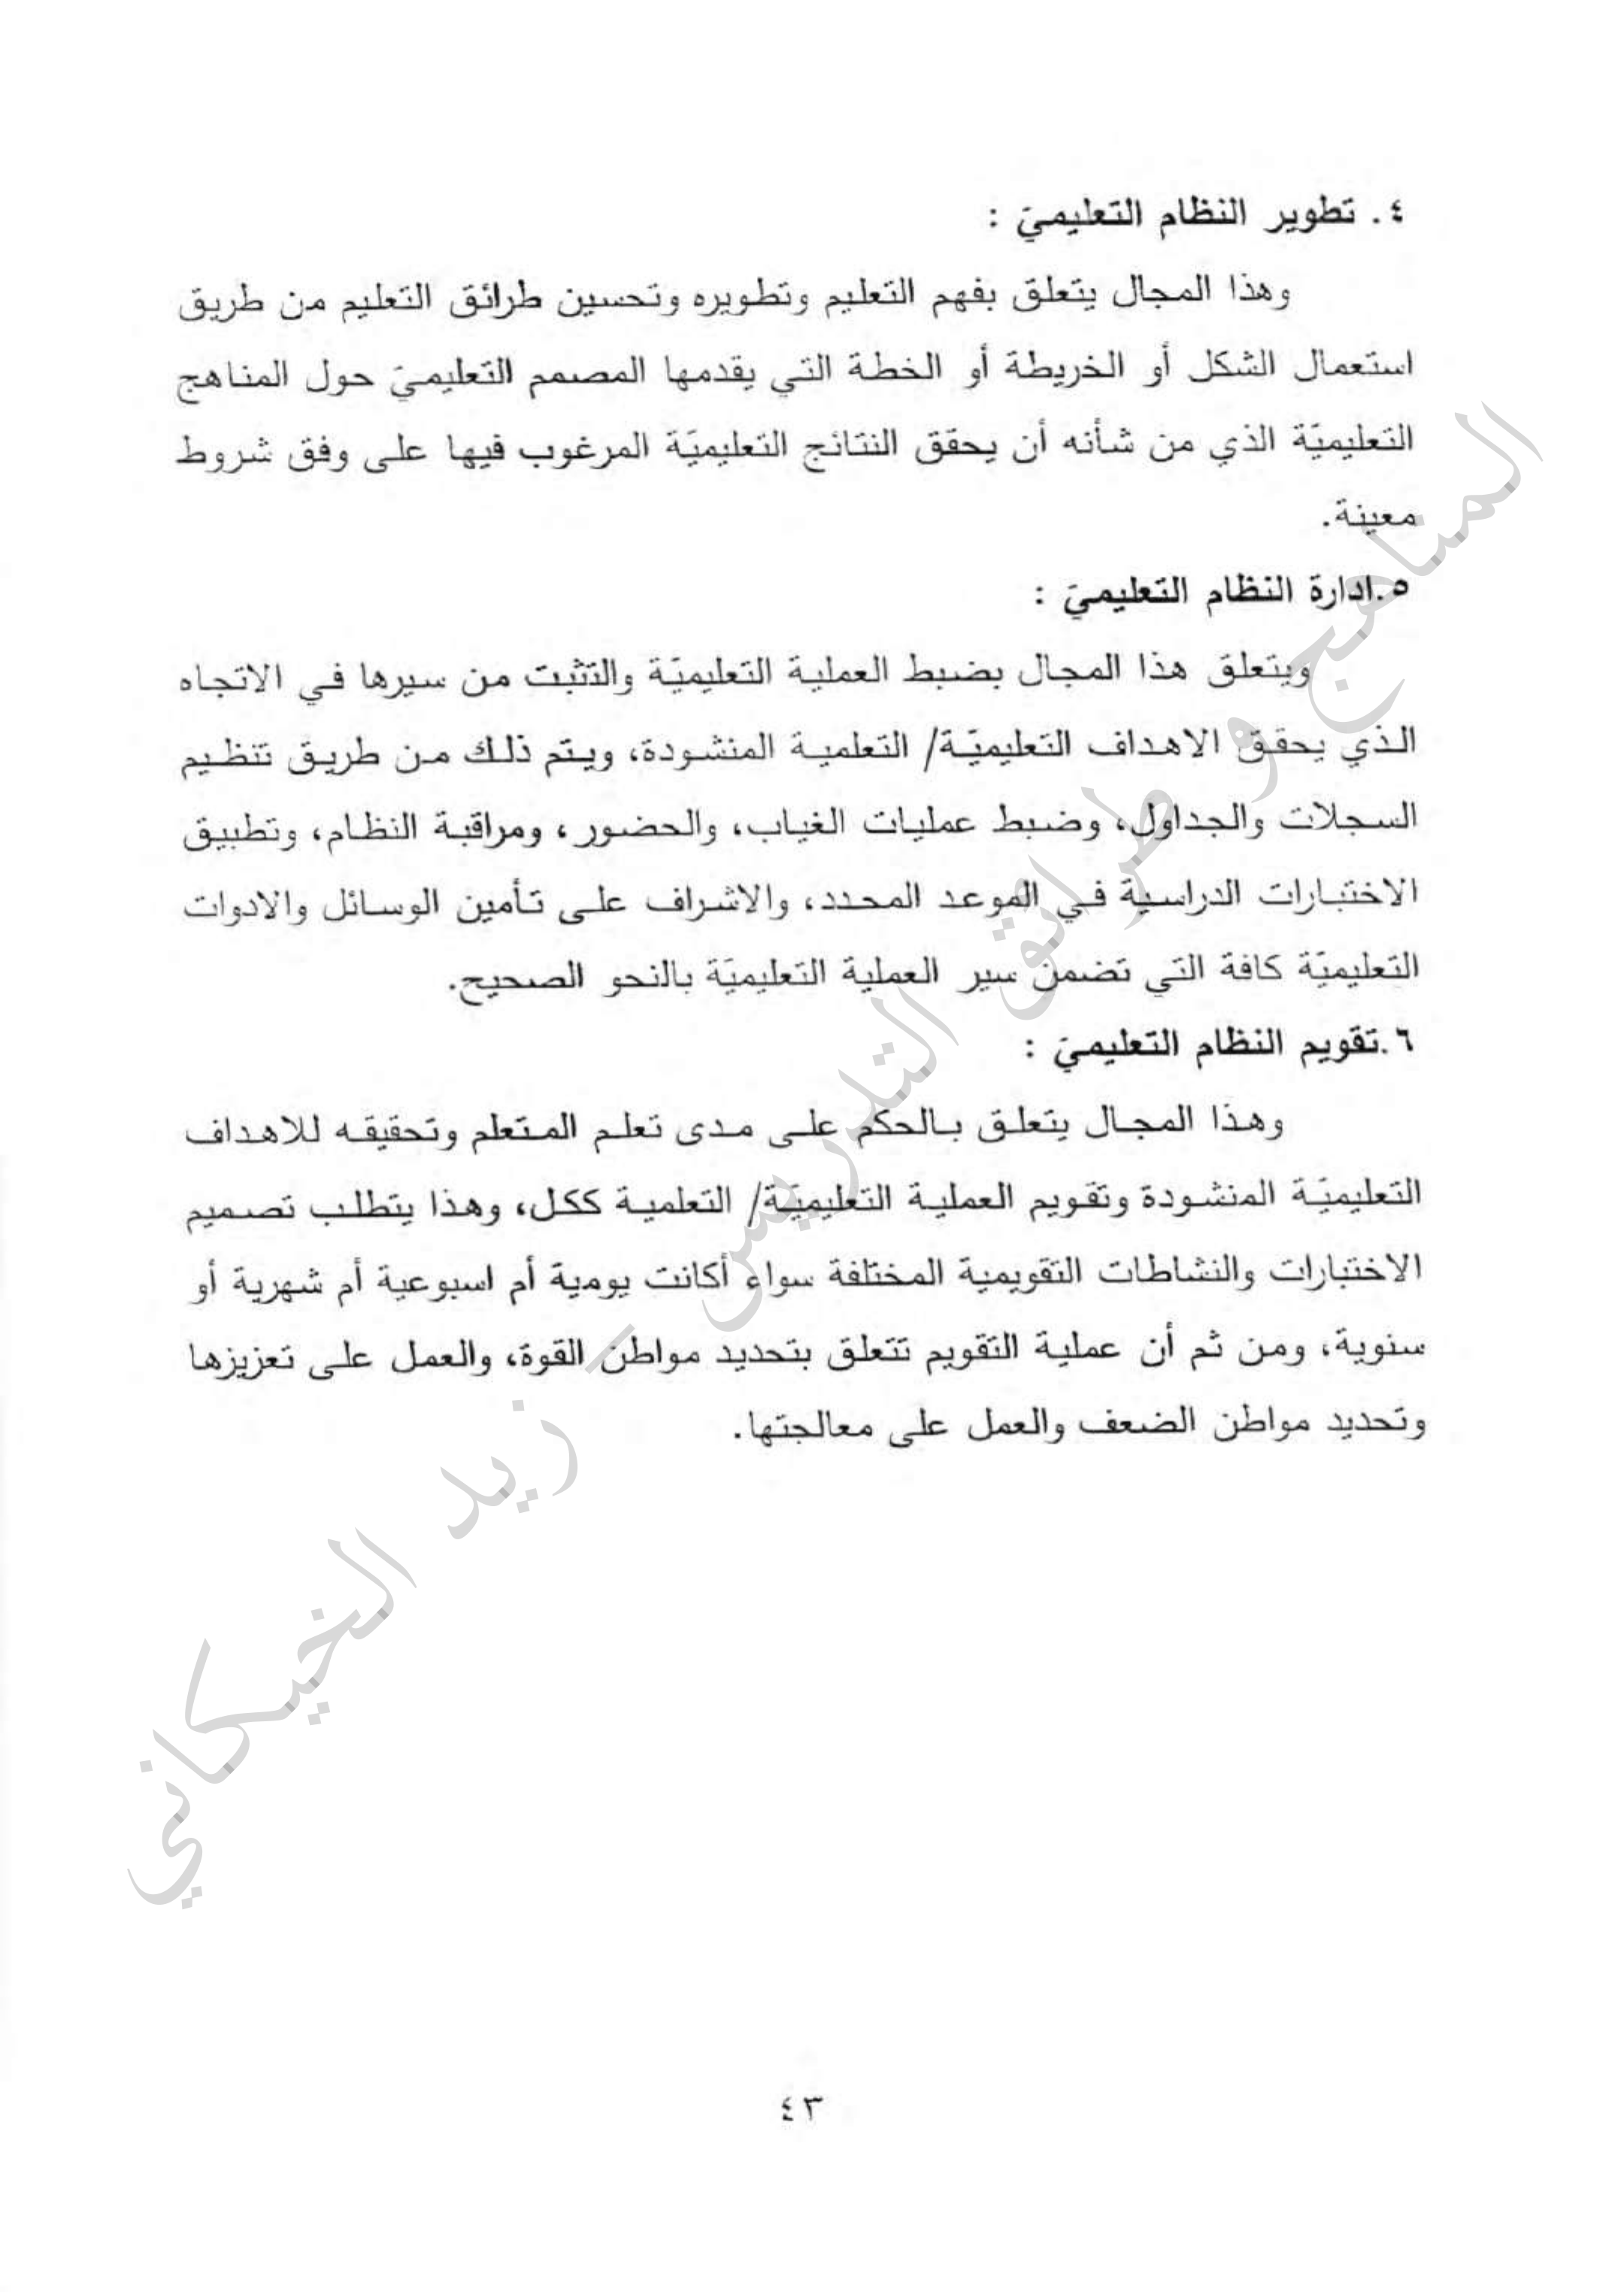 ٤. تطوير النظام التعليميَ :
وهذا المجال يتعلق بفهم التعليم وتطويره وتحسين طرائق التعليم من طريق
استعمال الشكل أو الخريطة أو الخطة التي يقدمها المصمم التعليميَ حول المناهج
التعليميَة الذي من شأنه أن يحقق النتائج التعليميَة المرغوب فيها على وفق شروط
معينة.
٥.ادارة النظام التعليميَ :
ويتعلق هذا المجال بضبط العملية التعليميَة والتثبت من سيرها في الاتجاه
الذي يحقق الاهداف التعليميَة/ التعلمية المنشودة، ويتم ذلك من طريق تنظيم
السجلات والجداول، وضبط عمليات الغياب، والحضور، ومراقبة النظام، وتطبيق
الاختبارات الدراسية في الموعد المحدد، والاشراف على تأمين الوسائل والادوات
التعليميَة كافة التي تضمن سير العملية التعليميَة بالنحو الصحيح.
٦.تقويم النظام التعليميَ :
وهذا المجال يتعلق بالحكم على مدى تعلم المتعلم وتحقيقه للاهداف
التعليميَة المنشودة وتقويم العملية التعليميَة/ التعلمية ككل، وهذا يتطلب تصميم
الاختبارات والنشاطات التقويمية المختلفة سواء أكانت يومية أم اسبوعية أم شهرية أو
سنوية، ومن ثم أن عملية التقويم تتعلق بتحديد مواطن القوة، والعمل على تعزيزها
وتحديد مواطن الضعف والعمل على معالجتها.
المناهج و طرائق التدريس - زيد الخيكاني
٤٣